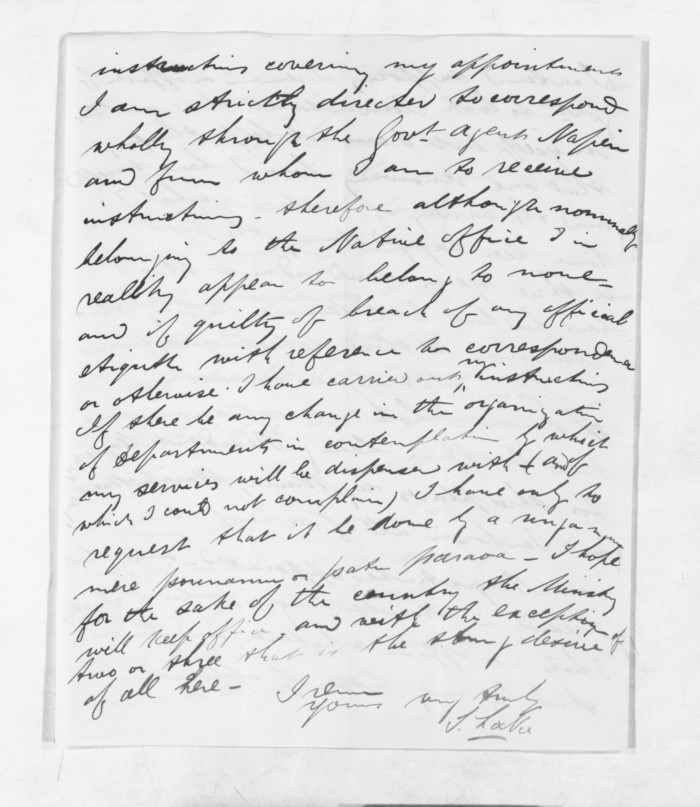 instructions covering my appointments
I am strictly directed to correspond
wholly through the Govt Agent Napier
and from whom I am to receive
instructions - therefore although nominally
belonging to the Native Office I in
reality appear to belong to none -
and if guilty of breach of any official
etiquette with reference to correspondence
or otherwise. I have carried out my instructions
If there be any change in the organization
of Departments in contemplation by which
my services will be dispensed with (and of
which I could not complain) I have only to
request that it be done by a
mere pounamu or patu paraoa - I hope
for the sake of the country the Ministry
will keep office, and with the exception of
two or three that is the strong desire
of all here -
I am
Yours very truly
S. Locke